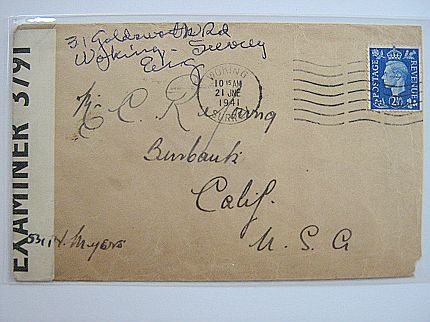 31 Goldsworth Rd
Woking - Surrey
Eng
WOKING
10 15 AM
21 JNE
1941
SURREY
POSTAGE REVENUE
2½D
C. R.
Burbank
Calif.
U. S. A
531 N. Myers
EXAMINER 3791